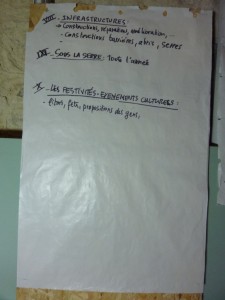 VIII - INFRASTRUCTURES :
→ Constructions, réparation, amélioration, ...
- constructions barrières, abris, serres
- SOUS LA SERRE : toute l'année
X - LES FESTIVITÉS - EVENEMENTS CULTURELS :
- films, fête, propositions des gens,